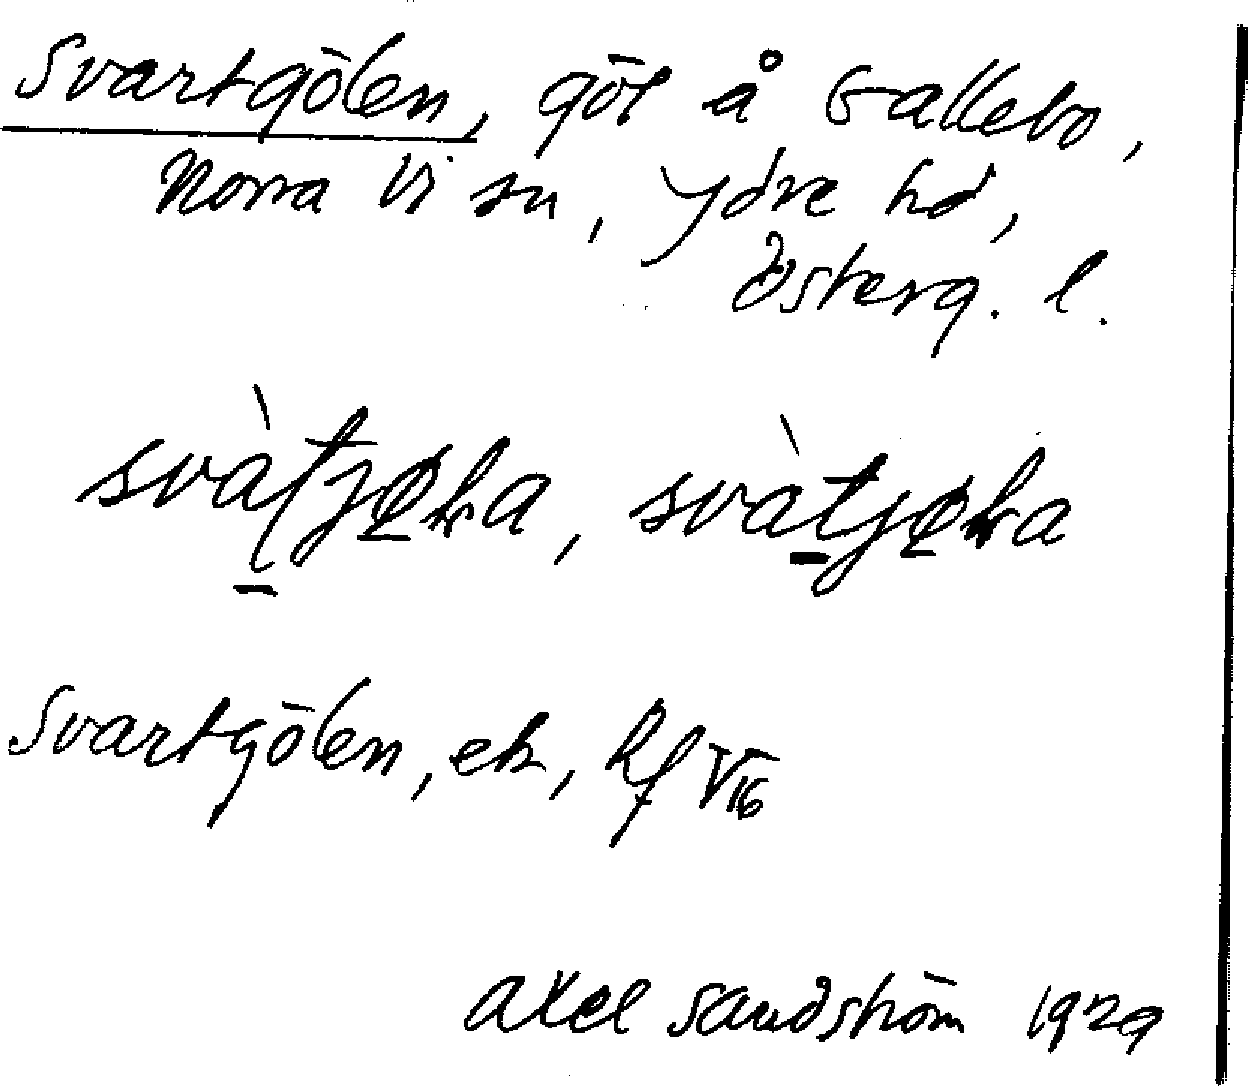 Svartgölen, göl å Gallebo,
Norra Vi sn, Ydre hd,
Österg. l.
Svartgölen, ek, hf V16
Axel Sandström 1929